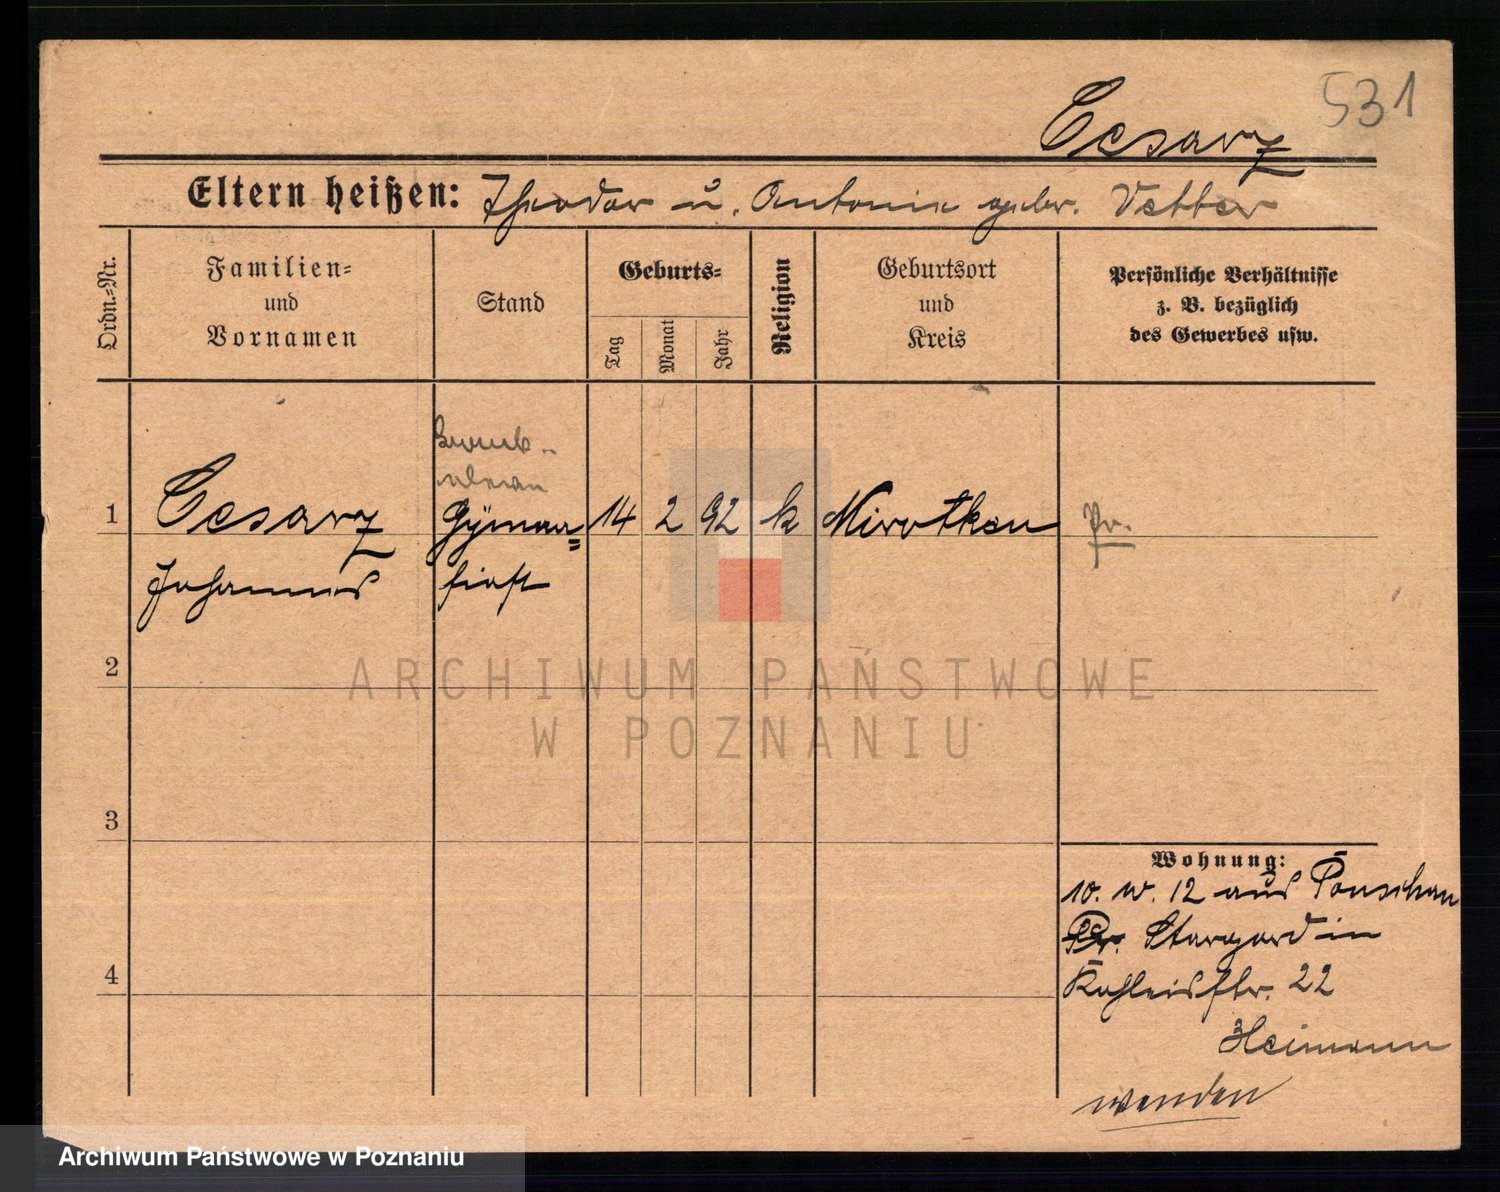 531
Cesarz
Eltern heißen: Theodor u. Antonie gebr. Vetter
Ordn.-Nr.
Familien-
und
Vornamen
Stand
Geburts-
Tag
Monat
Jahr
Religion
Geburtsort
und
Kreis
Persönliche Verhältnisse
z. B. bezüglich
des Gewerbes usw.
1
Cesarz
Johannes
Bank-
Gymna=
siast
14
2
92
k
Mirotken
Pr.
2
3
4
Wohnung:
10. IV. 12 aus Ponschau
Pr. Stargard in
Kohleisstr. 22
Heimann
wenden
ARCHIWUM PAŃSTWOWE
W POZNANIU
Archiwum Państwowe w Poznaniu